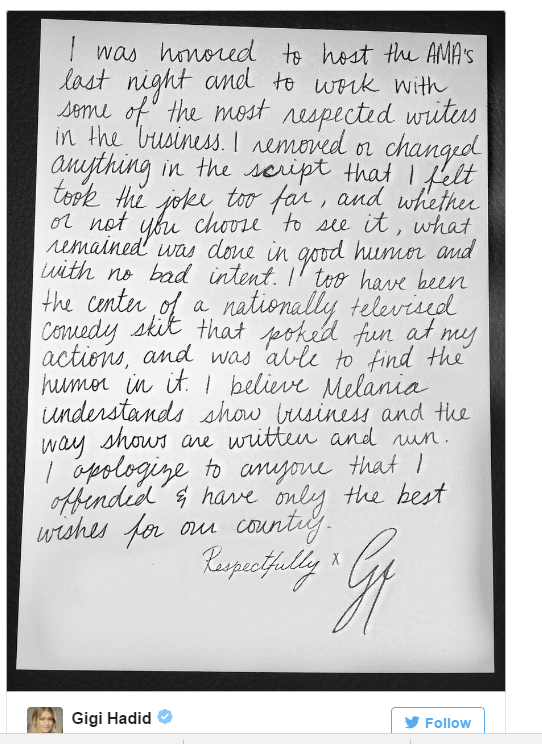 I was honored to host the AMA's
last night and to work with
some of the most respected writers
in the business. I removed or changed
anything in the script that I felt
took the joke too far, and whether
or not you choose to see it, what
remained was done in good humor and
with no bad intent. I too have been
the center of a nationally televised
comedy skit that poked fun at my
actions, and was able to find the
humor in it. I believe Melania
understands show business and the
way shows are written and run.
I apologize to anyone that I
offended & have only the best
wishes for our country.
Respectfully x
Gigi Hadid
Follow